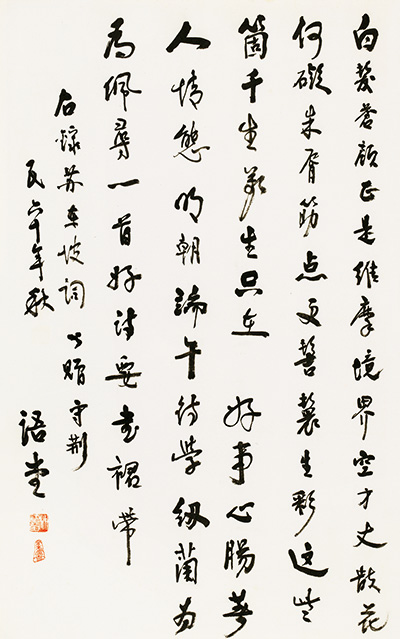 白髮蒼顏正是維摩境界空方丈散花
何礙朱脣筯點更髻鬟生彩這些
箇千生萬生只在 好事心腸著
人情態明朝端午待學紉蘭為
為佩尋一首好詩要書裙帶
右錄蘇東坡詞 以贈 守荊
民六十年秋
語堂